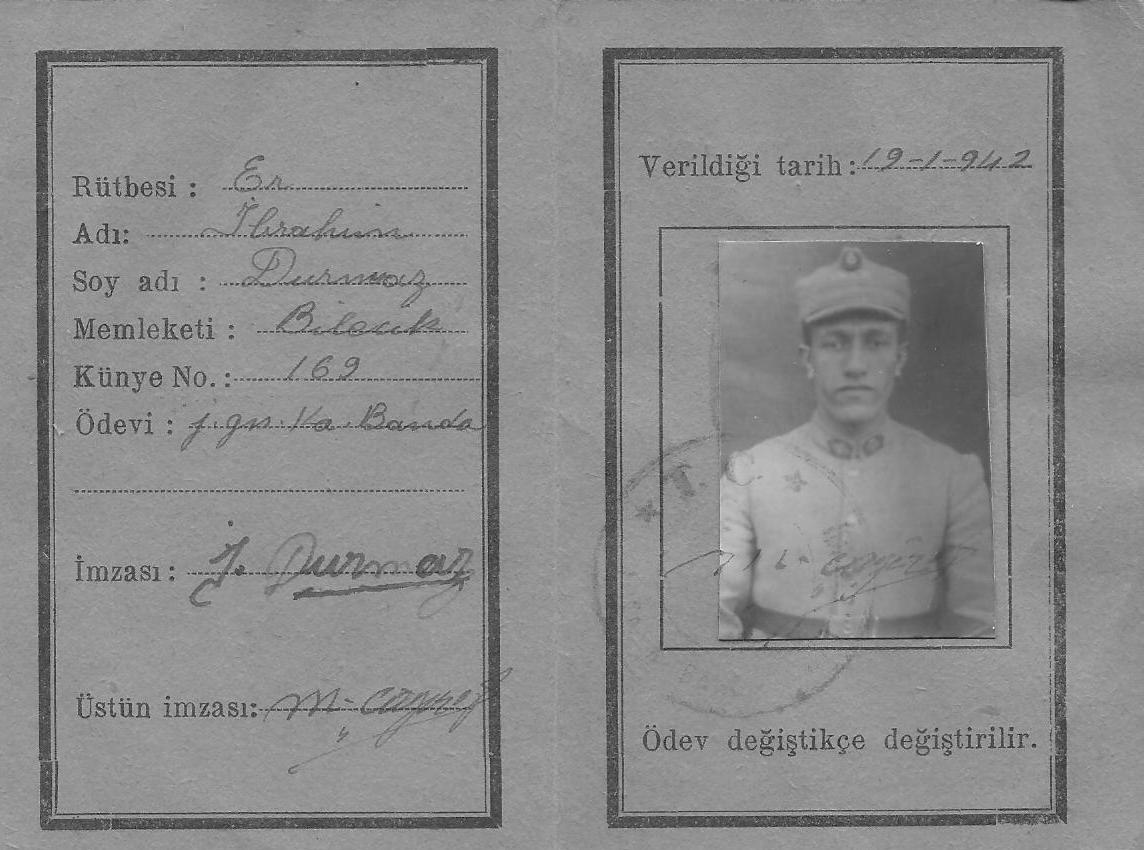 Rütbesi : Er
Adı: İbrahim
Soy adı : Durmaz
Memleketi : Bilecik
Künye No. : 169
Ödevi : Banda
İmzası : İ. Durmaz
Üstün imzası: M.
Verildiği tarih : 19-1-942
T. C.
Ödev değiştikçe değiştirilir.